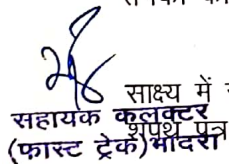 साक्ष्य में
सहायक कलक्टर
शपथ पत्र
(फास्ट ट्रेक) भादरा